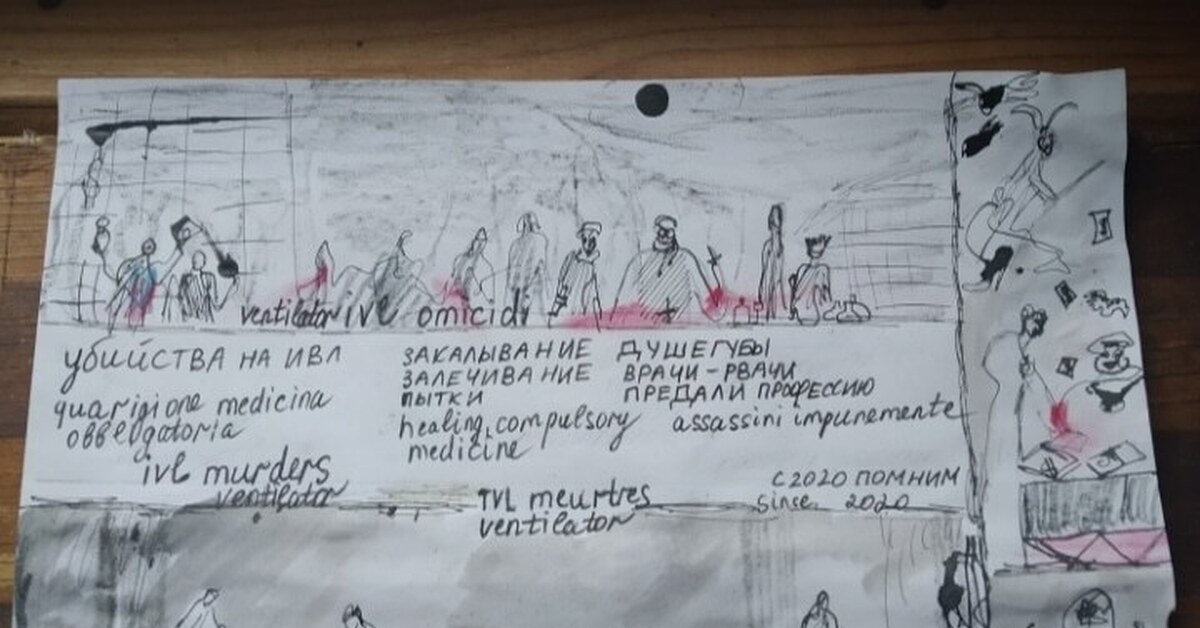 ventilator ivl omicidi
убийства на ивл
quarigione medicina
obbligatoria
ivl murders
ventilator
ЗАКАЛЫВАНИЕ
ЗАЛЕЧИВАНИЕ
ПЫТКИ
healing, compulsory
medicine
TVL meurtres
ventilator
ДУШЕГУБЫ
ВРАЧИ-РВАЧИ
ПРЕДАЛИ ПРОФЕССИЮ
assassini impunemente
С 2020 ПОМНИМ
Since 2020